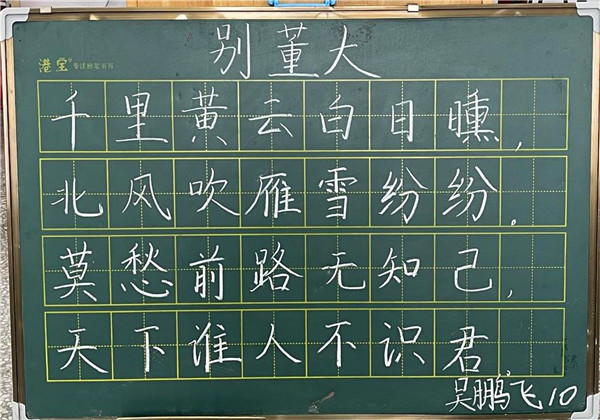 港宝® 专注粉笔书写
别董大
千里黄云白日曛,
北风吹雁雪纷纷。
莫愁前路无知己,
天下谁人不识君。
吴鹏飞10